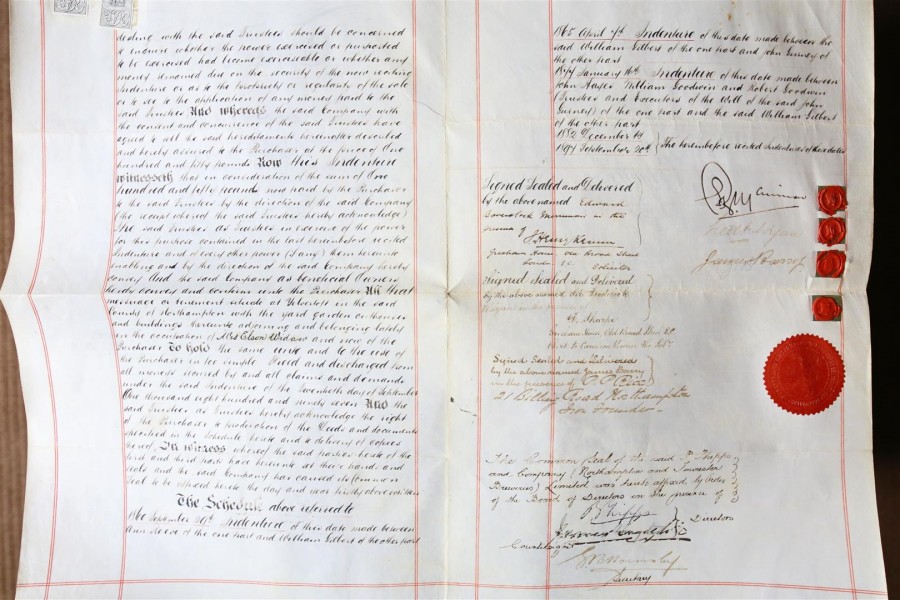 dealing with the said Trustees should be concerned
to inquire whether the power exercised or purported
to be exercised had become exerciseable or whether any
money remained due on the security of the now reciting
Indenture or as to the propriety or regularity of the sale
or to see to the application of any money paid to the
said Trustees And whereas the said Company with
the consent and concurrence of the said Trustees have
agreed to sell the said hereditaments hereinafter described
and hereby assured to the Purchaser at the price of One
hundred and fifty pounds Now this Indenture
witnesseth that in consideration of the sum of One
hundred and fifty pounds now paid by the Purchaser
to the said Trustees by the direction of the said Company
(the receipt whereof the said Trustees hereby acknowledge)
The said Trustees as Trustees in exercise of the power
for this purpose contained in the last hereinbefore recited
Indenture and of every other power (if any) them hereunto
enabling and by the direction of the said Company hereby
convey And the said Company as beneficial Owners
hereby convey and confirm unto the Purchaser All that
messuage or tenement situate at Yelvertoft in the said
County of Northampton with the yard garden outhouses
and buildings thereunto adjoining and belonging lately
in the occupation of Mrs Elson Widow and now of the
Purchaser To hold the same unto and to the use of
the Purchaser in fee simple freed and discharged from
all moneys secured by and all claims and demands
under the said Indenture of the Twentieth day of September
One thousand eight hundred and ninety seven And the
said Trustees as Trustees hereby acknowledge the right
of the Purchaser to production of the Deeds and documents
specified in the Schedule hereto and to delivery of copies
thereof In witness whereof the said parties hereto of the
first and third parts have hereunto set their hands and
seals and the said Company has caused its Common
Seal to be affixed hereto the day and year first above written
The Schedule above referred to
1860 September 29th Indenture of this date made between
Ann Reeve of the one part and William Gilbert of the other part
1865 April 7th Indenture of this date made between the
said William Gilbert of the one part and John Gurney of
the other part
1877 January 16th Indenture of this date made between
John Hayes William Goodwin and Robert Goodwin
(Trustees and Executors of the Will of the said John
Gurney) of the one part and the said William Gilbert
of the other part
1882 December 14
1897 September 20th The hereinbefore recited Indentures of these dates
Signed Sealed and Delivered
by the above named Edward
in the
presence of
J Henry
Gresham House Old Broad Street
London E.C.
Solicitor
Signed Sealed and Delivered
by the above named
in the presence of
Sharpe
Gresham House Old Broad Street E.C.
Clerk to
Signed Sealed and Delivered
by the above named James Barry
in the presence of
21 Billing Road Northampton
Iron Founder
James Barry
The Common Seal of the said P. Phipps
and Company (Northampton and Towcester
Breweries) Limited was hereto affixed by Order
of the Board of Directors in the presence of
Phipps
Directors
Secretary